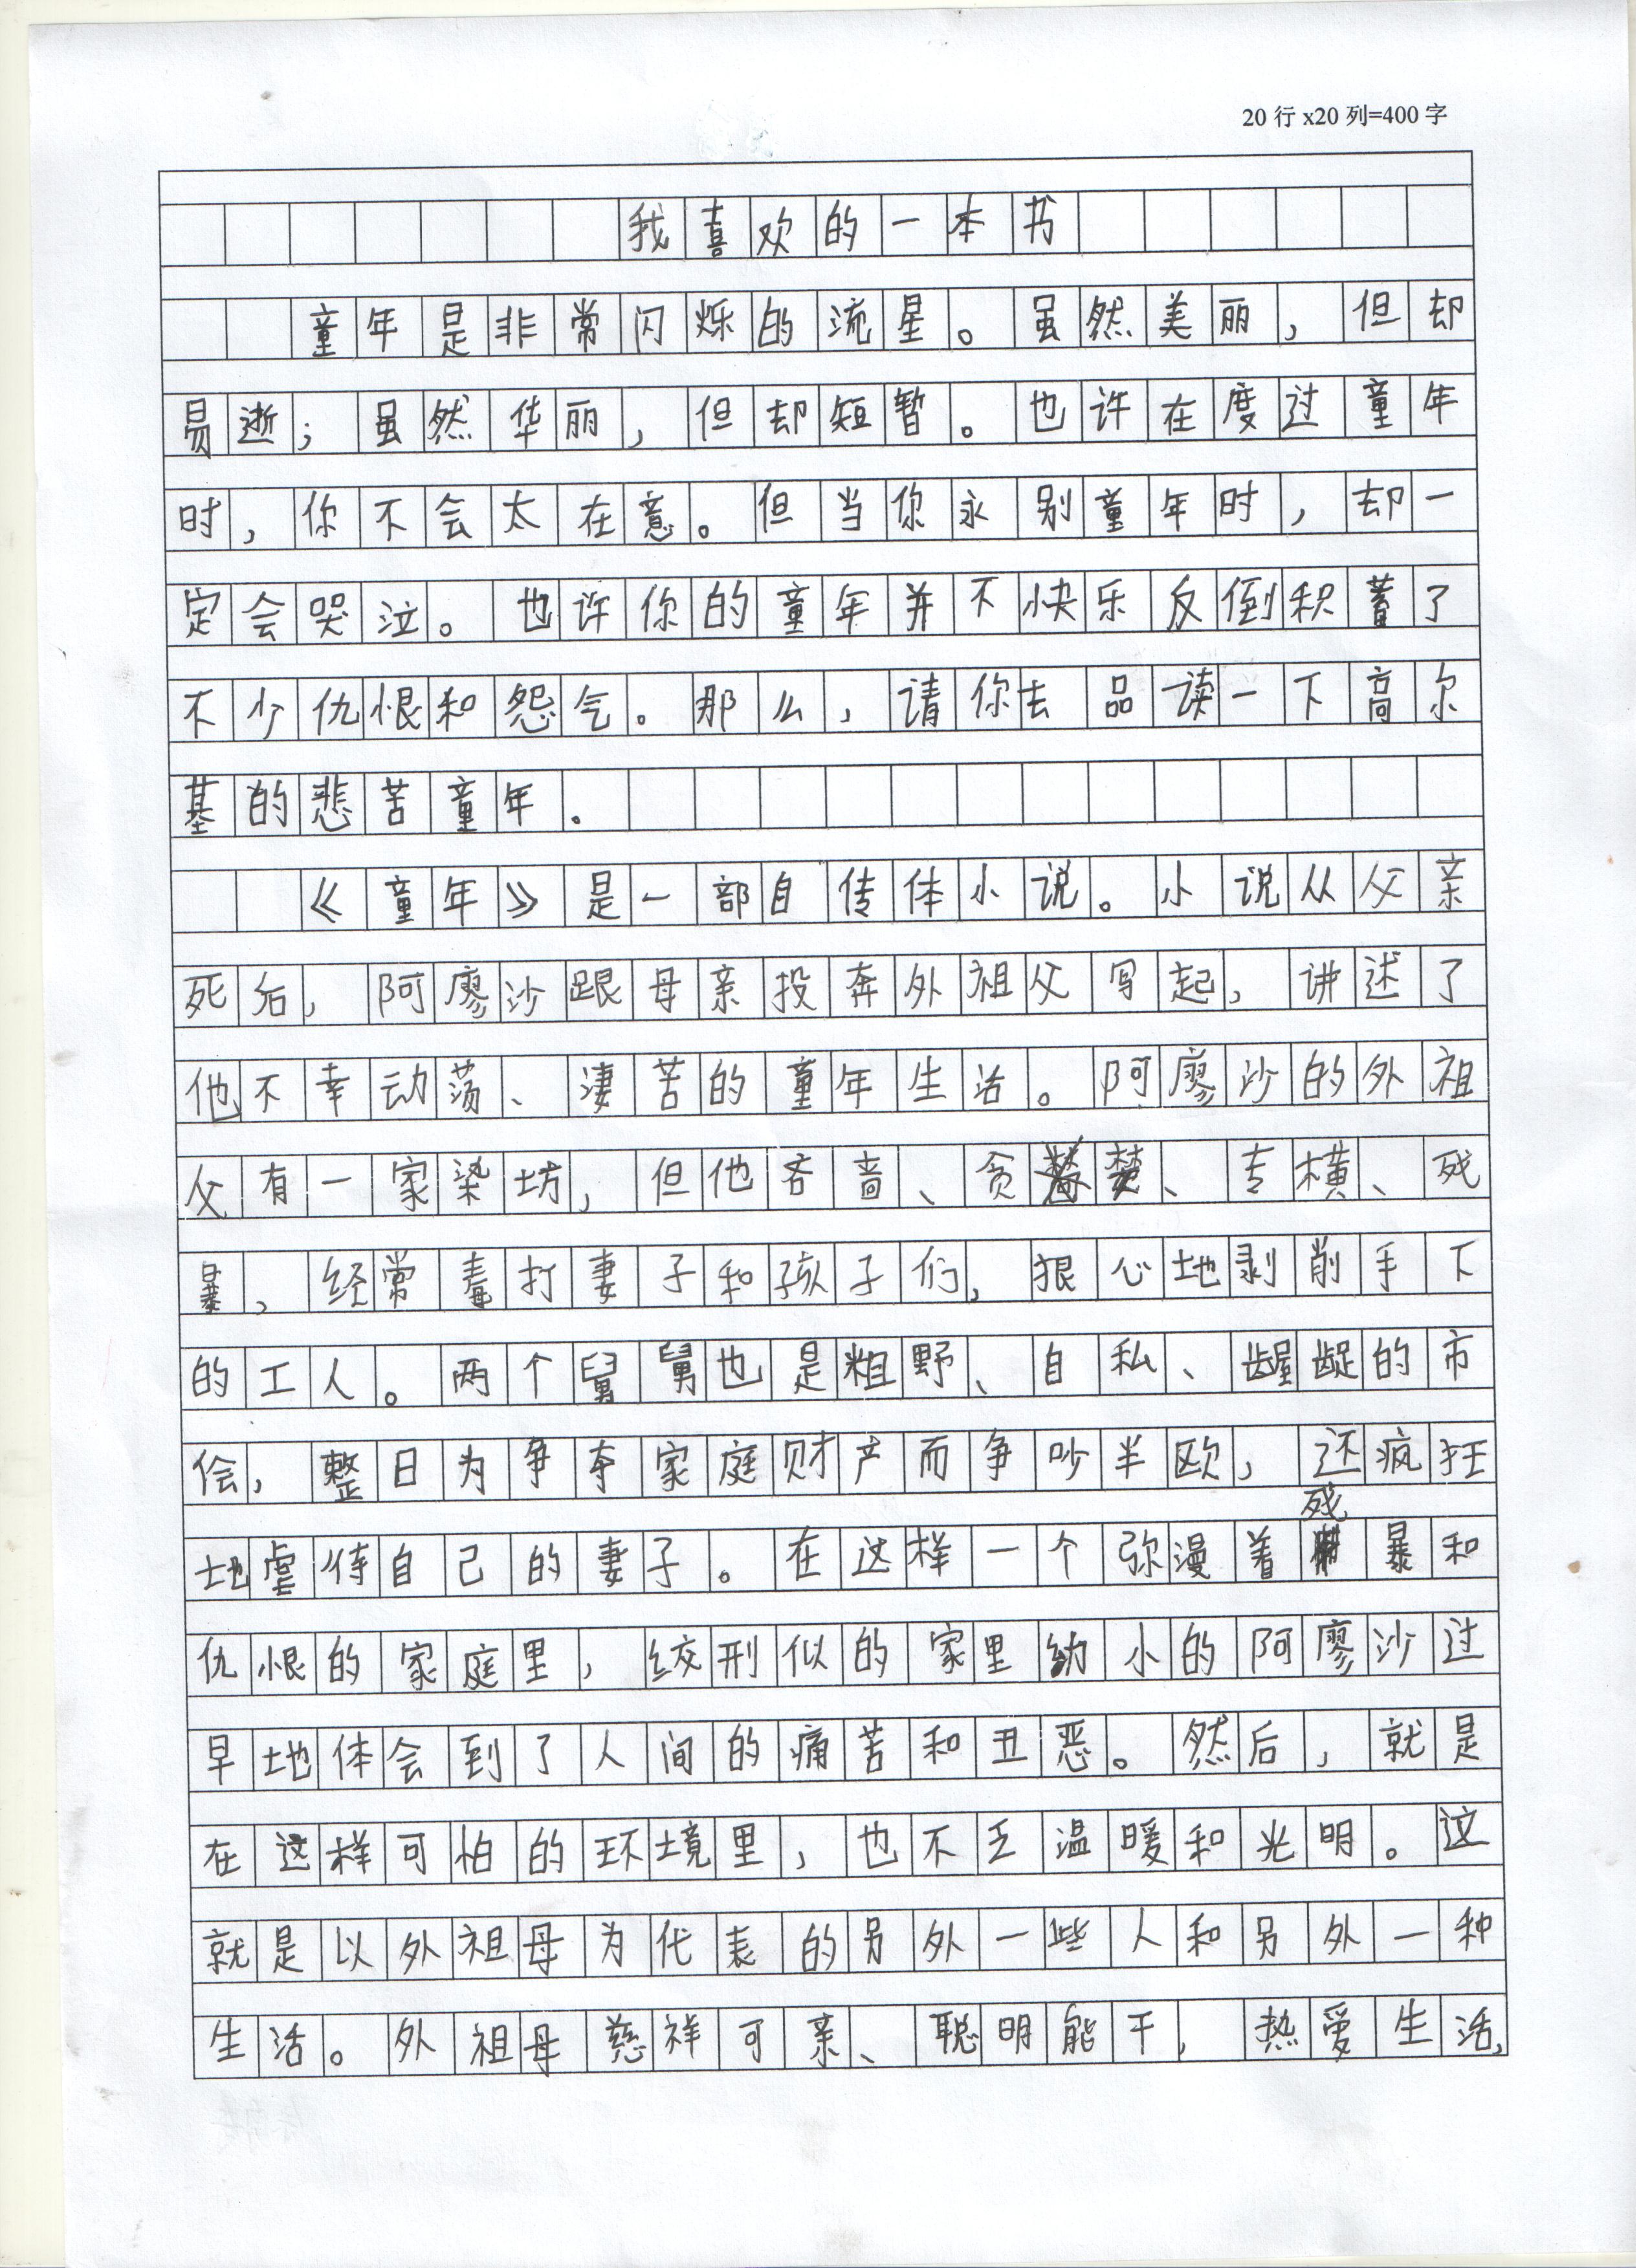 20行x20列=400字
我喜欢的一本书
童年是非常闪烁的流星。虽然美丽，但却
易逝；虽然华丽，但却短暂。也许在度过童年
时，你不会太在意。但当你永别童年时，却一
定会哭泣。也许你的童年并不快乐反倒积蓄了
不少仇恨和怨气。那么，请你去品读一下高尔
基的悲苦童年。
《童年》是一部自传体小说。小说从父亲
死后，阿廖沙跟母亲投奔外祖父写起，讲述了
他不幸动荡、凄苦的童年生活。阿廖沙的外祖
父有一家染坊，但他吝啬、贪婪、专横、残
暴，经常毒打妻子和孩子们，狠心地剥削手下
的工人。两个舅舅也是粗野、自私、龌龊的市
侩，整日为争夺家庭财产而争吵半欧，还疯狂
地虐待自己的妻子。在这样一个弥漫着残暴和
仇恨的家庭里，绞刑似的家里幼小的阿廖沙过
早地体会到了人间的痛苦和丑恶。然后，就是
在这样可怕的环境里，也不乏温暖和光明。这
就是以外祖母为代表的另外一些人和另外一种
生活。外祖母慈祥可亲、聪明能干，热爱生活，